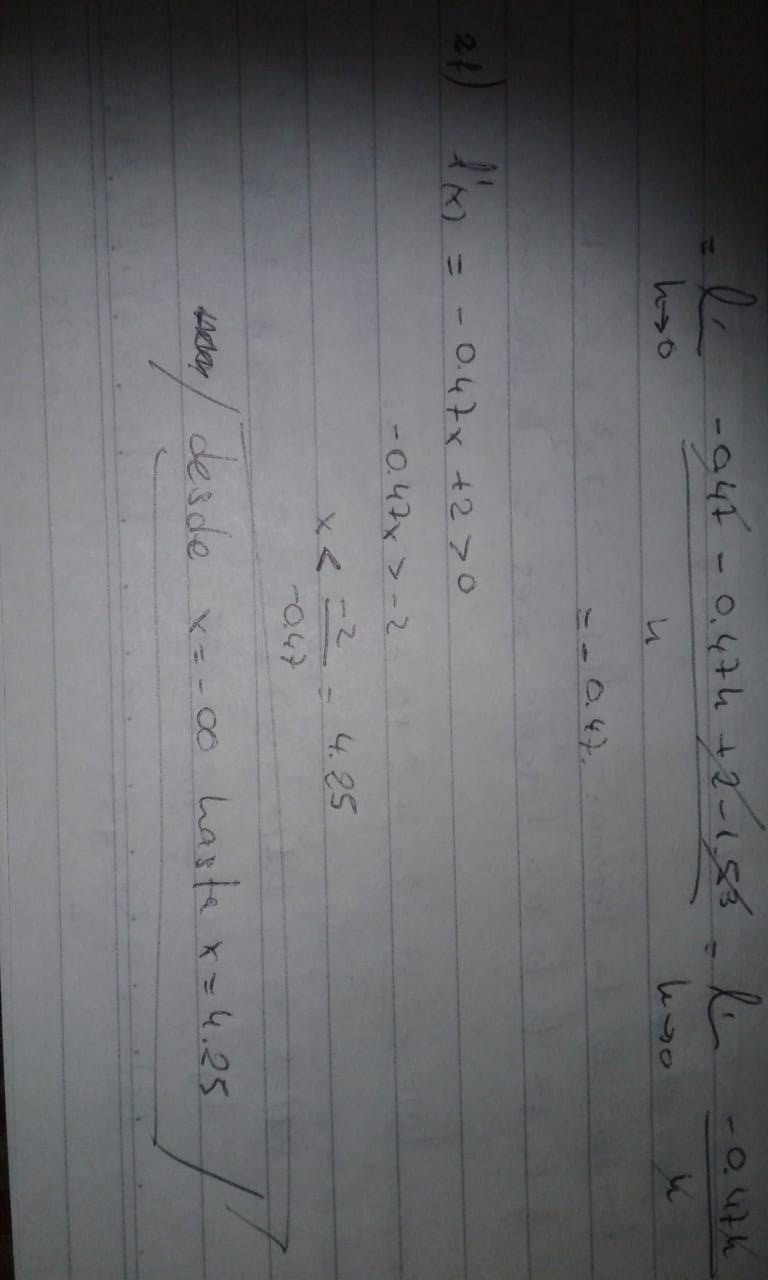 = lim h→0 (-0.47 - 0.47h + 2 - 1.53)/h = lim h→0 (-0.47h)/h
= -0.47.
2f) f'(x) = -0.47x + 2 > 0
-0.47x > -2
x < -2/-0.47 = 4.25
desde x = -∞ hasta x = 4.25